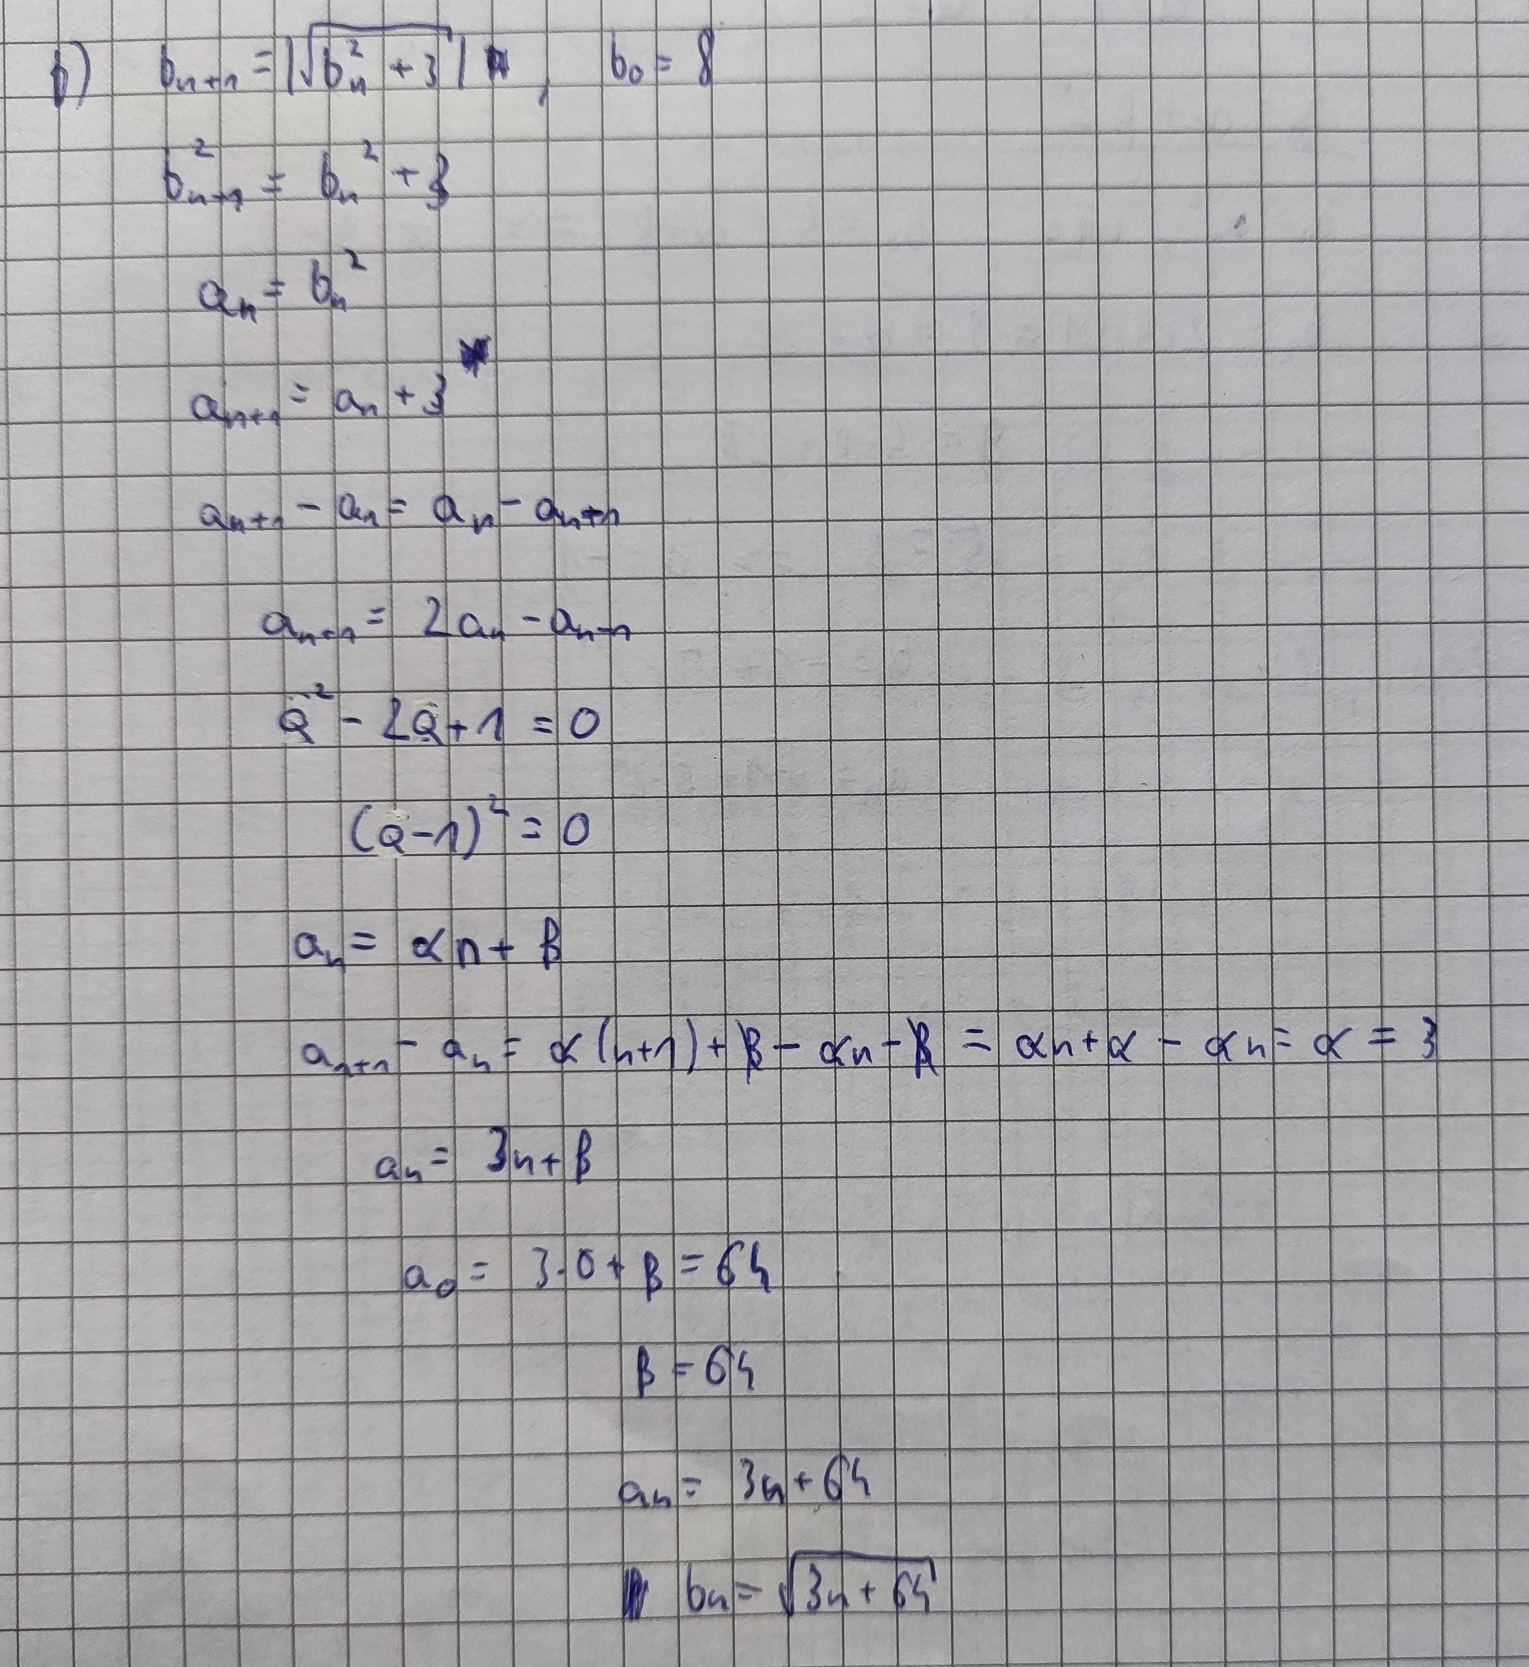 b) b_{n+1} = |√(b_n² + 3)|, b_0 = 8
b_{n+1}² = b_n² + 3
a_n = b_n²
a_{n+1} = a_n + 3
a_{n+1} - a_n = a_n - a_{n+1}
a_{n+1} = 2a_n - a_{n-1}
Q² - 2Q + 1 = 0
(Q - 1)² = 0
a_n = αn + β
a_{n+1} - a_n = α(n+1) + β - αn - β = αn + α - αn = α = 3
a_n = 3n + β
a_0 = 3·0 + β = 64
β = 64
a_n = 3n + 64
b_n = √(3n + 64)